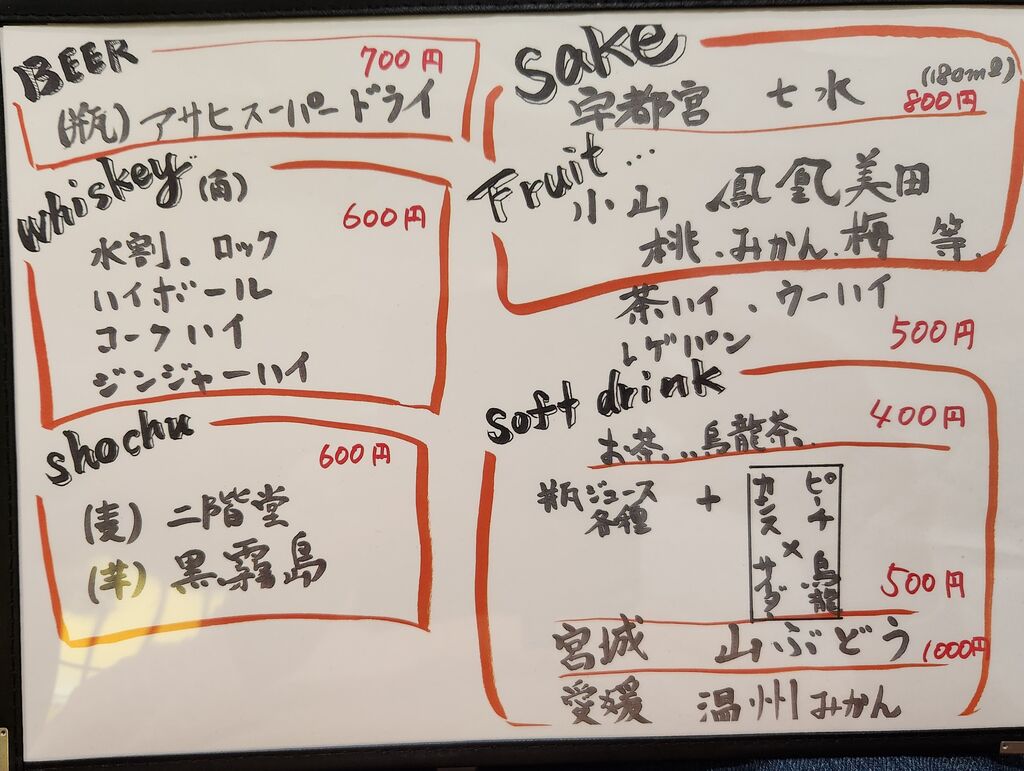 BEER
700円
(瓶) アサヒスーパードライ
whiskey (角)
600円
水割。ロック
ハイボール
コークハイ
ジンジャーハイ
shochu
600円
(麦) 二階堂
(芋) 黒霧島
sake
(180ml)
宇都宮 七水
800円
Fruit...
小山 鳳凰美田
桃.みかん.梅 等.
茶ハイ、ウーハイ
レゲパン
500円
soft drink
400円
お茶...烏龍茶..
瓶ジュース各種 +
カシス×サイダー
ピーチ×烏龍
500円
宮城 山ぶどう 1000円
愛媛 温州みかん